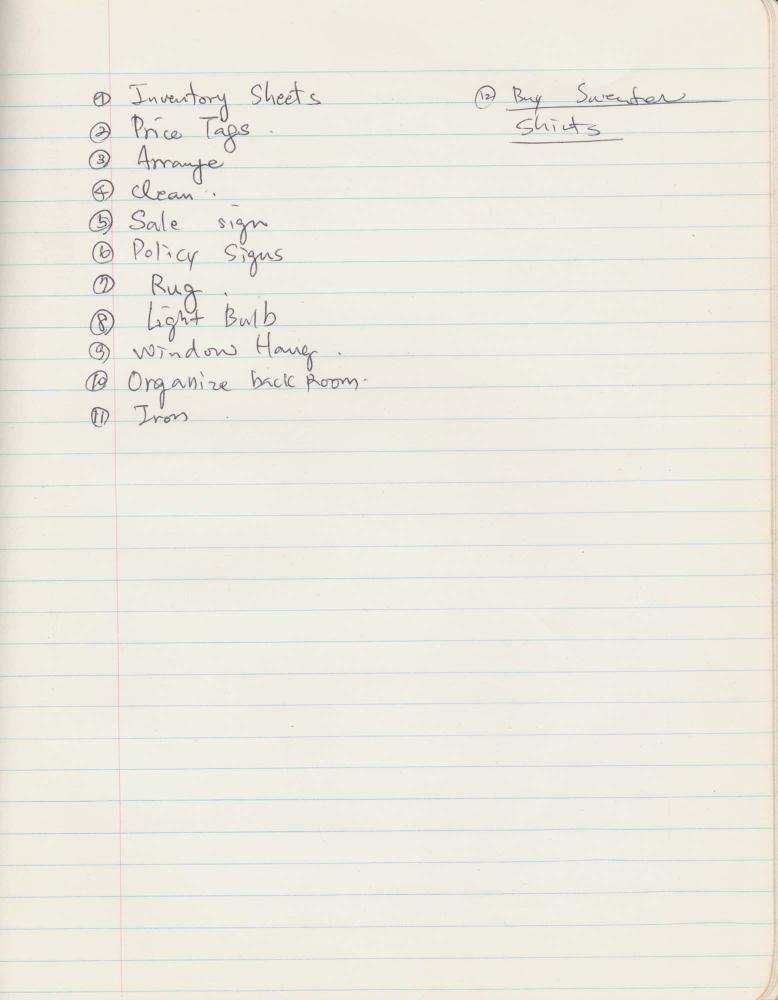 ① Inventory Sheets
② Price Tags
③ Arrange
④ Clean
⑤ Sale sign
⑥ Policy Signs
⑦ Rug
⑧ Light Bulb
⑨ Window Hang
⑩ Organize back Room
⑪ Iron
⑫ Buy Sweater
Shirts